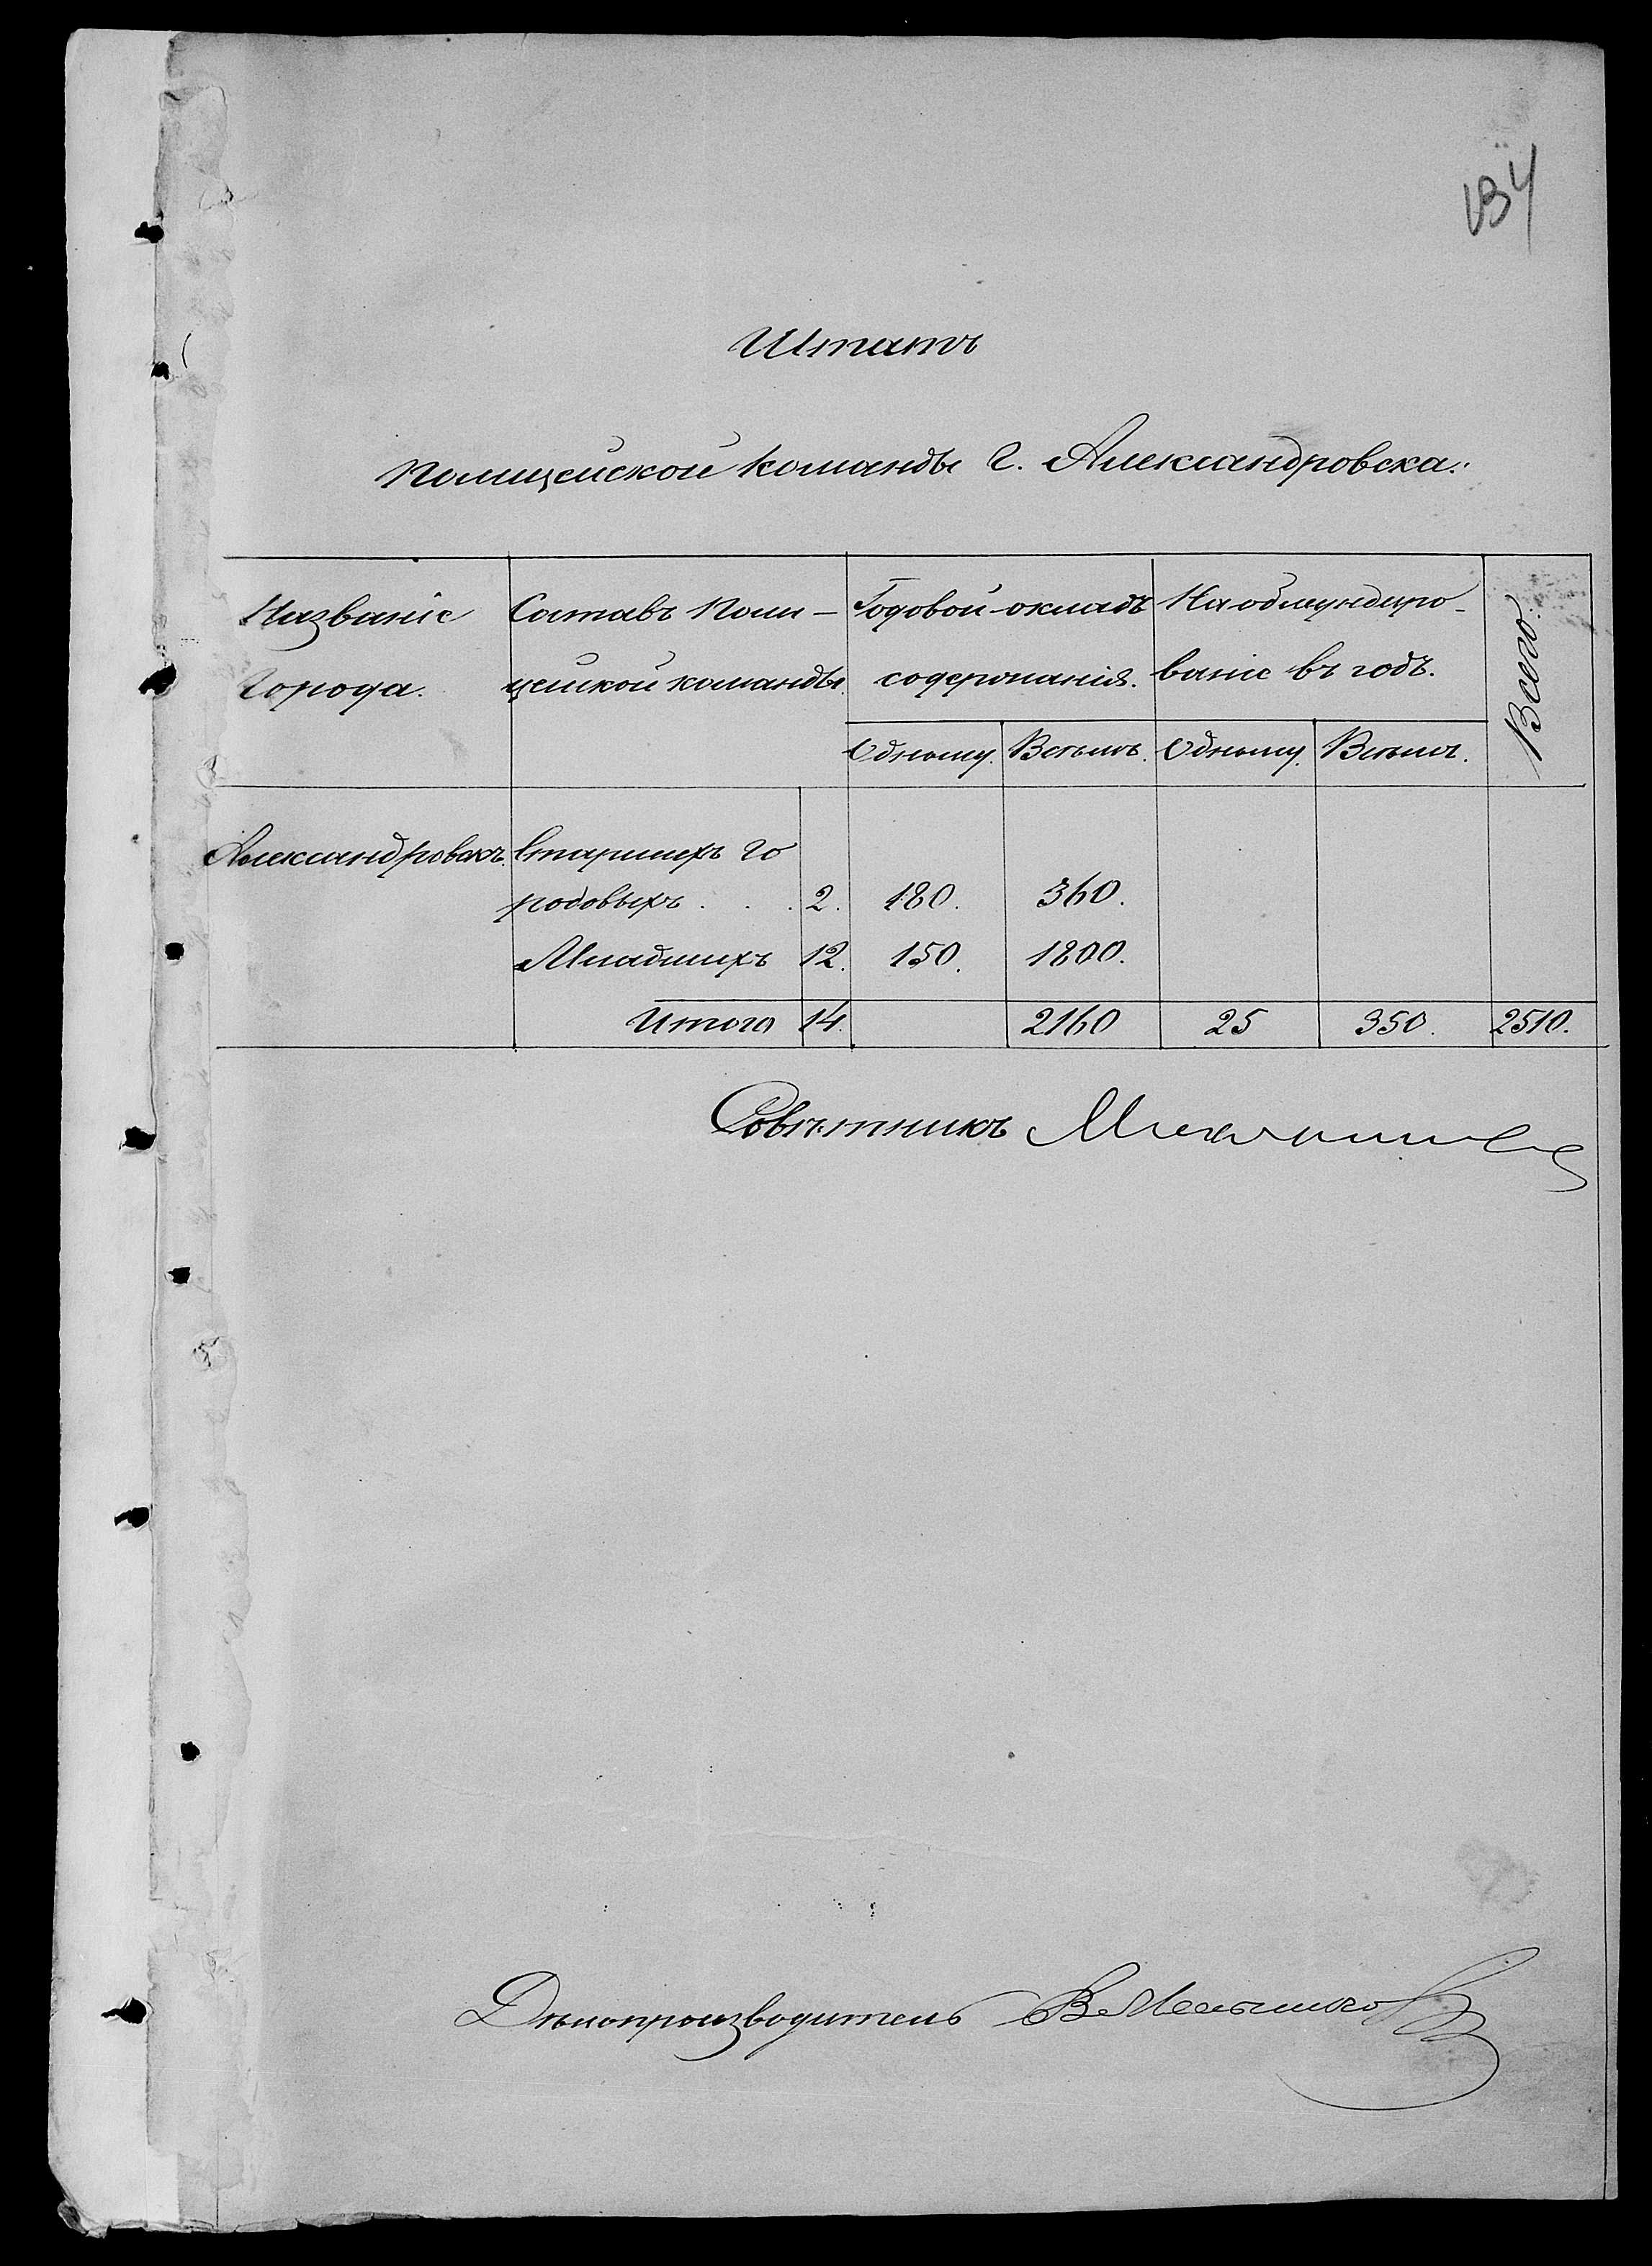 134
Штатъ
Полицейской команды г. Александровска.
Названіе Города.
Составъ Поли-
цейской команды.
Годовой окладъ
содержанія.
На обмундиро-
ваніе въ годъ.
Всего.
Одному. Всѣмъ. Одному. Всѣмъ.
Александровскъ. Старшихъ го
родовыхъ . . . 2. 180. 360.
Младшихъ 12. 150. 1800.
Итого 14. 2160 25 350. 2510.
Совѣтникъ
Дѣлопроизводитель